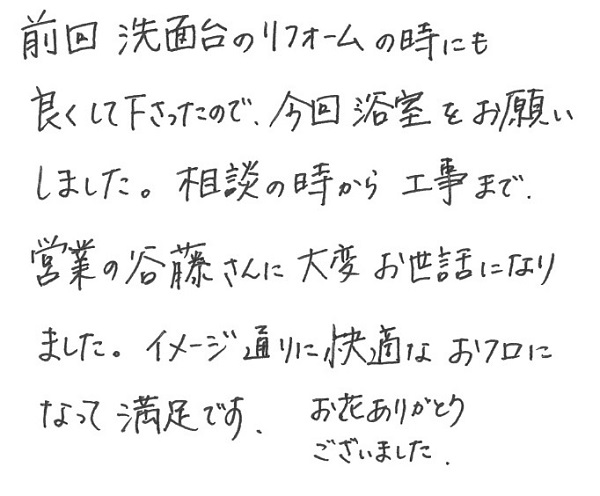 前回 洗面台のリフォームの時にも
良くして下さったので、今回浴室をお願い
しました。相談の時から 工事まで、
営業の谷藤さんに 大変 お世話になり
ました。イメージ通りに快適な おフロに
なって 満足です、
お花ありがとう
ございました、